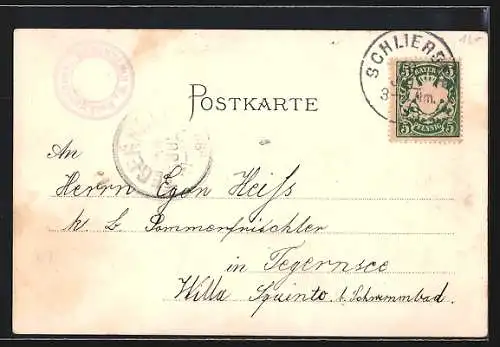 SCHLIERS
3
Nm.
BAYERN
5 5
PFENNIG
5 5
POSTKARTE
TEGERN
JUL
An
Herrn Egon Heiss
k. b. Sommerfrischler
in Tegernsee
Villa Squinto b. Schwimmbad.